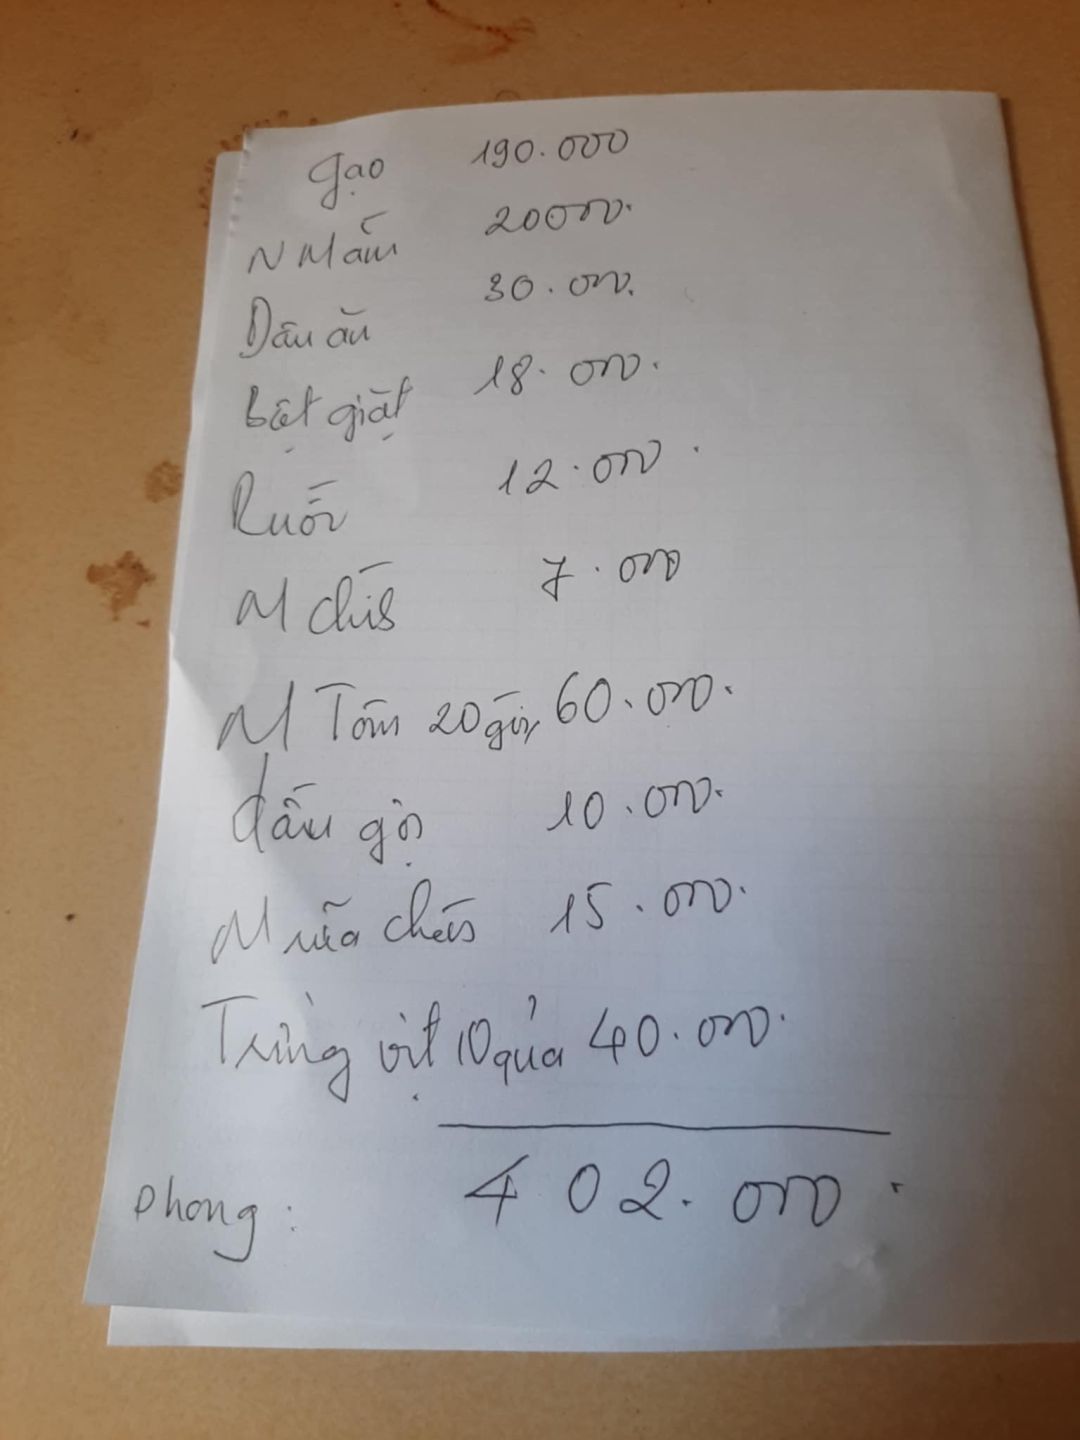 Gạo 190.000
N Mắm 20000.
Dầu ăn 30.000.
Bột giặt 18.000.
Ruốc 12.000.
M chís 7.000
M Tôm 20 gói 60.000.
dầu gội 10.000.
M rữa chén 15.000.
Trứng vịt 10 quả 40.000.
402.000.
phong: